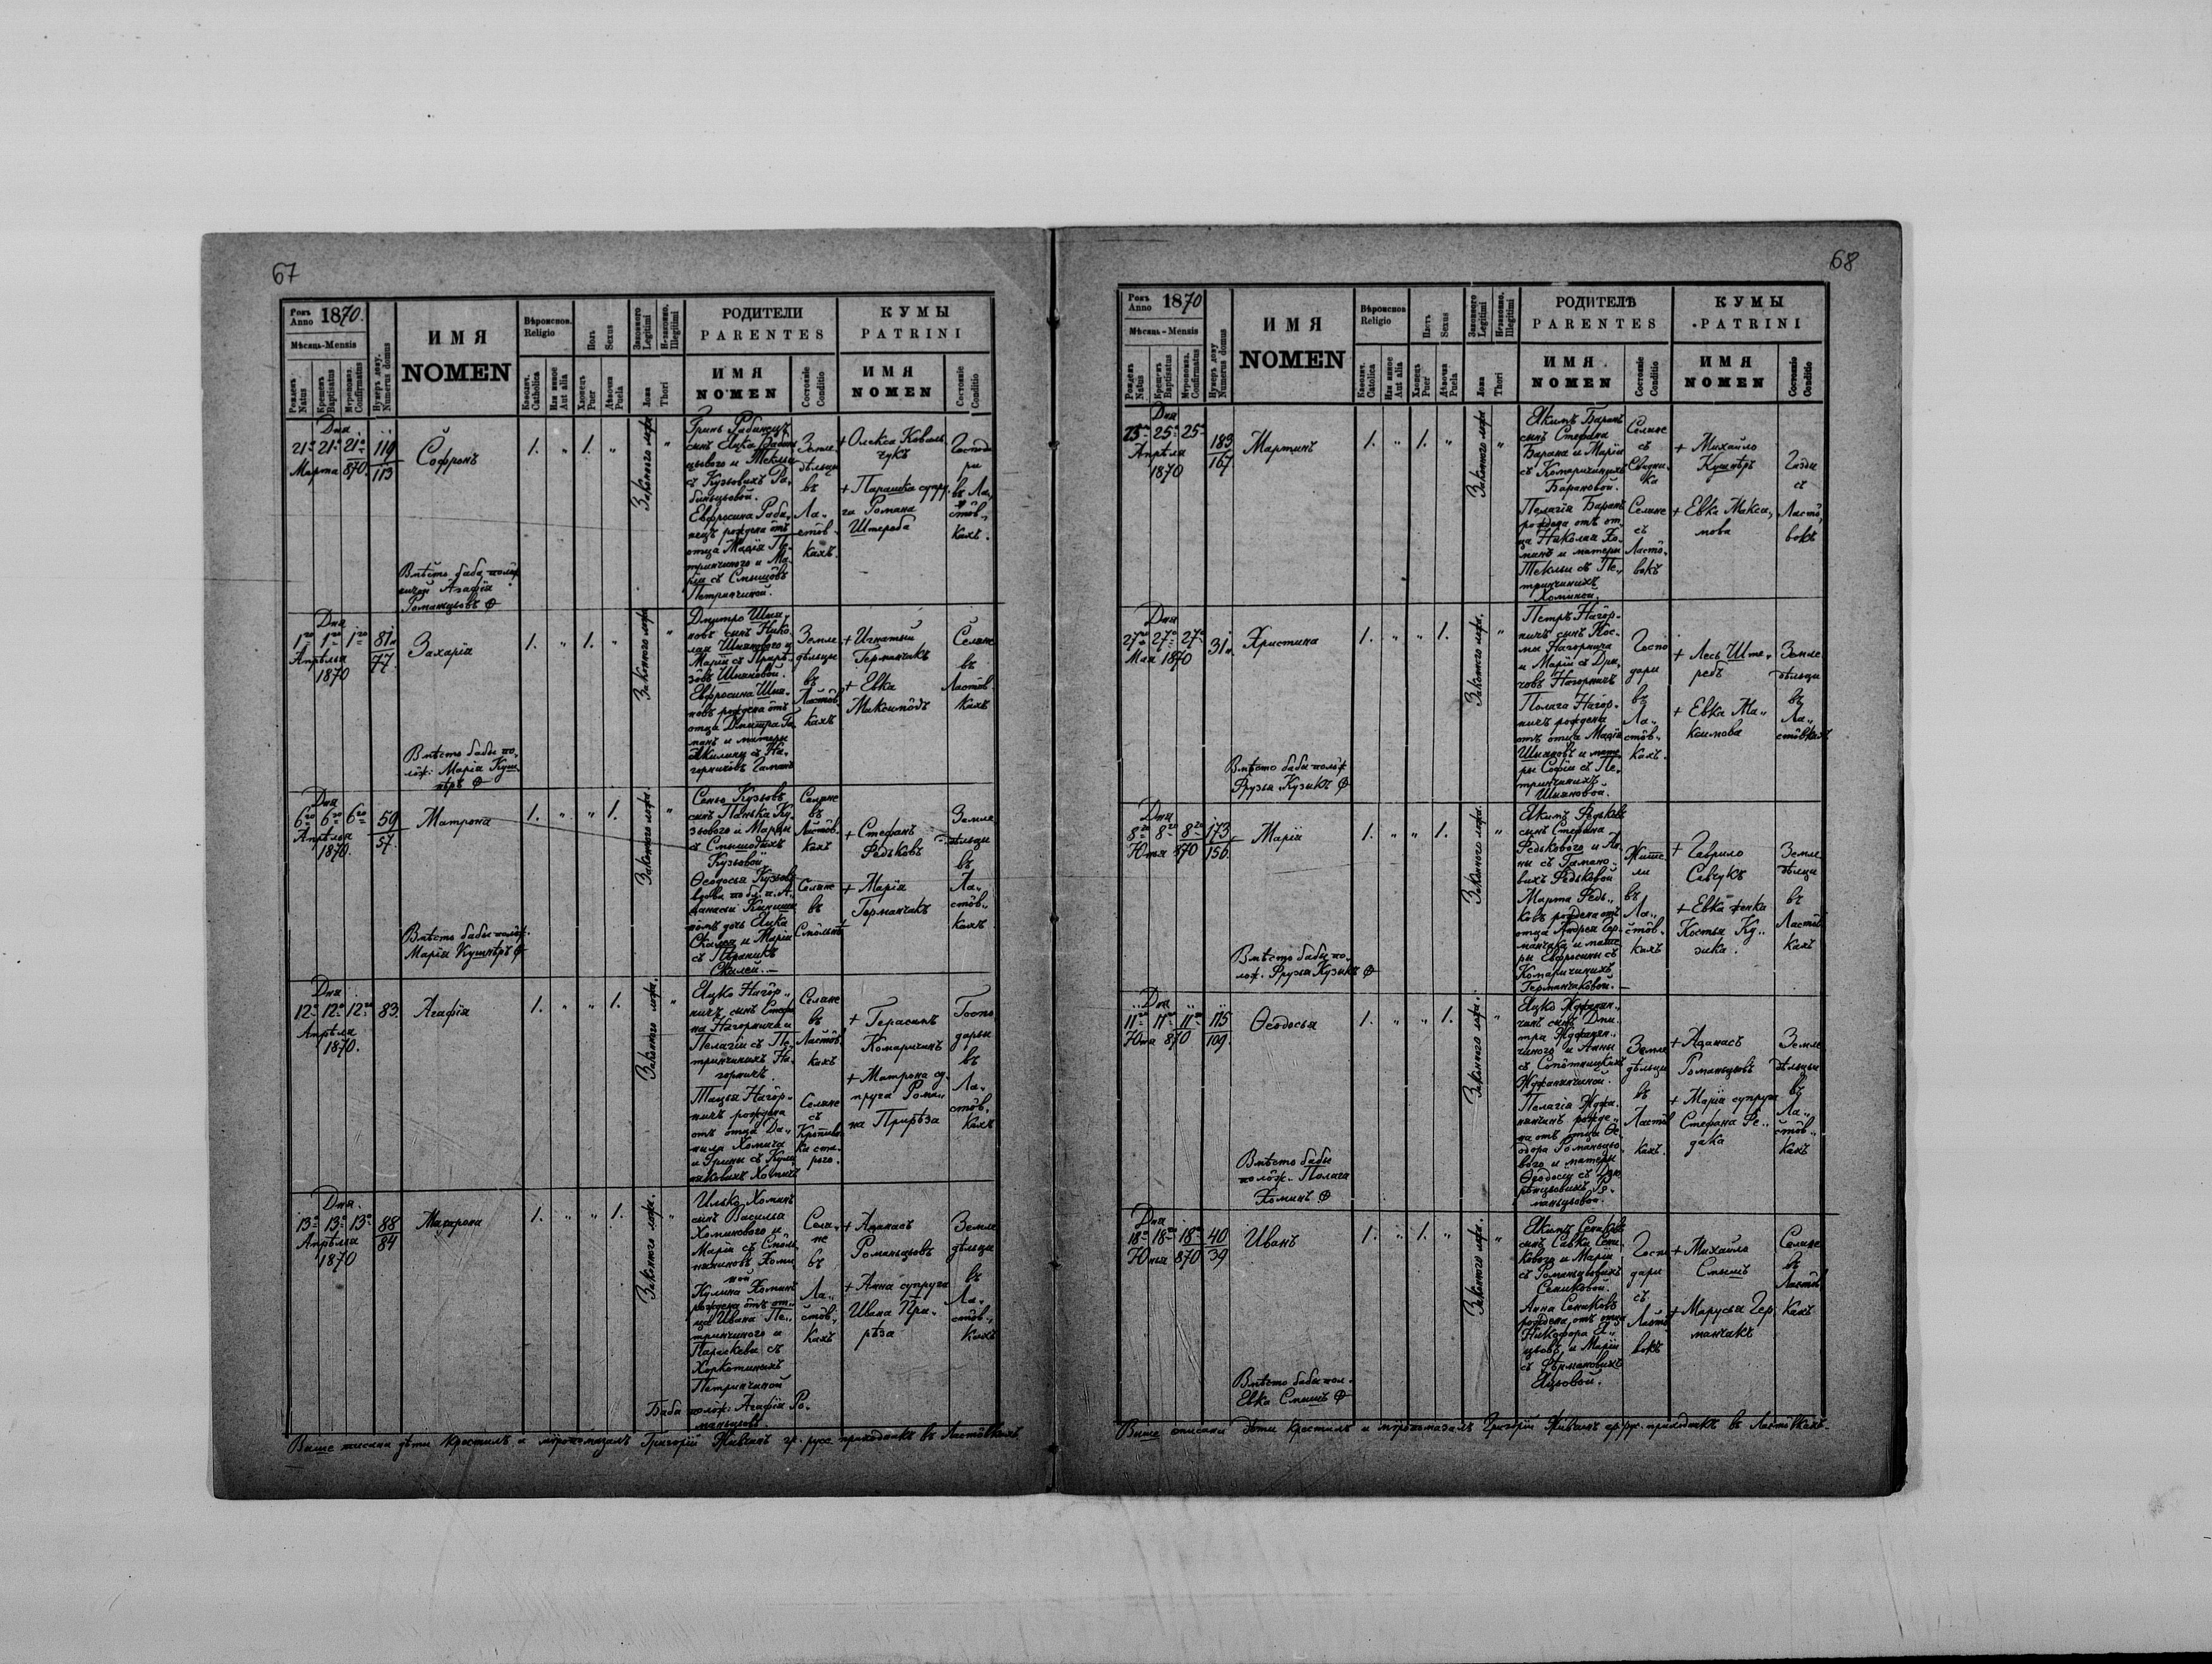 67
Рокъ Anno 1870.
Мѣсяць-Mensis
Рожденъ Natus
Крещенъ Baptisatus
Мѵропомаз. Confirmatus
Нумеръ дому. Numerus domus
ИМЯ
NOMEN
Вѣроиспов. Religio
Католич. Catholica
Или инное Aut alia
Полъ Sexus
Хлопецъ Puer
Дѣвочка Puela
Законного Legitimi
Незаконно. Illegitimi
Ложа
Thori
РОДИТЕЛИ
PARENTES
ИМЯ
NOMEN
Состояніе Conditio
КУМЫ
PATRINI
ИМЯ
NOMEN
Состояніе Conditio
Дня
21. 21. 21.
Марта 870.
119
113
Софронъ
1. " 1. "
Законного ложа
"
Гринь Рабинецъ
сынъ Яцка Рабин
цьового и Теклы
съ Кузьовихъ Ра
бинцьовой.
Евфросина Раби,
нецъ рождена отъ
отца Матія Пе
тринчиного и Ма
ріи съ Смишовъ
Петринчиной.
Земле
дѣльцы
въ
Ла.
стôв.
кахъ.
+ Олекса Коваль
чукъ
+ Парашка супру.
га Романа
Штереба
Господа
ри
въ Ла,
стôв.,
кахъ.
Вмѣсто бабы полôж
ничой Агафія
Романцьовъ
Дня
1го 1го 1го
Апрѣля
1870
81.
77.
Захарія
1. " 1. "
Законного ложа
"
Дмитро Шия,
новъ сынъ Нико
лая Шиянового и
Маріи съ Прирѣ
зовъ Шияновой.
Евфросина Шия.
новъ рождена отъ
отца Дмитра Га
манъ и матери
Акилины съ На.
горничовъ Гаманъ
Земле
дѣльцы
въ
Ластôв
кахъ
+ Игнатый
Германчакъ
+ Евка
Максимôвъ
Селяне
въ
Ластôв.
кахъ
Вмѣсто бабы по,
лож: Марія Куш
нѣръ
Дня
6го 6го 6го
Апрѣля
1870.
59
57.
Матрона
1. " " 1.
Законного ложа.
"
Сеньо Кузьовъ
сынъ Панька Ку
зьового и Марыи
съ Смышовыхъ
Кузьовой
Ѳеодосья Кузьовъ
вдова по бл. п. А.
ѳанасіи
дочь Яцка
и Маріи
съ
Селяне
въ
Ластôв.
кахъ
Селяне
въ
Смôльнѣ
+ Стефанъ
Федьковъ
+ Марія
Германчакъ
Земле
дѣльцы
въ
Ла.
стôв.,
кахъ
Вмѣсто бабы полôж.
Марія Кушнѣръ
Дня
12. 12. 12.
Апрѣля
1870.
83.
Агафія
1. " " 1.
Законного ложа.
"
Яцко Нагôр.,
ничъ, сынъ Стефа
на Нагорнича и
Пелагіи съ Пе
тринчиныхъ На
горничъ
Тацья Нагôр.
ничъ рождена
отъ отца Да.,
нила Хомича
и Ирины съ
Хомичъ
Селяне
въ
Ластôв.
кахъ
Селяне
съ
Кропив
ки ста.
рого.
+ Герасимъ
Комаричинъ
+ Матрона су.
пруга Рома
на Прирѣза
Госпо
дары
въ
Ла.
стôв.
кахъ
Дня.
13. 13. 13.
Апрѣля
1870
88
84
Матрона
1. " " 1.
Законного ложа.
"
Илько Хоминъ
сынъ Василія
Хоминового и
Маріи съ Смôль
Хоми
ной
Кулина Хоминъ
рождена отъ от.
ца Ивана Пе.,
тринчиного и
Параскева съ
Хоркотиныхъ
Петринчиной
Селя.
не
въ
Ла.,
стôв.,
кахъ
+ Аѳанасъ
Романцьовъ
+ Анна супруга
Ивана При.
рѣза
Земле
дѣльцы
въ
Ла.
стôв.,
кахъ
Баба полôж: Агафія Ро.
манцьовъ.
Выше писаны дѣти крестилъ и мѵропомазалъ Григорій Живчакъ гр. русс приходникъ въ Ластôвкахъ
68
Рокъ Anno 1870
Мѣсяць - Mensis
Рожденъ Natus
Крещенъ Baptisatus
Мѵропомаз. Confirmatus
Нумеръ дому Numerus domus
ИМЯ
NOMEN
Вѣроиспов Religio
Католич. Catolica
Или инное Aut alia
Полъ Sexus
Хлопецъ Puer
Дѣвочка Puela
Законного Legitimi
Незаконно. Illegitimi
Ложа
Thori
РОДИТЕЛѢ
PARENTES
ИМЯ
NOMEN
Состояніе Conditio
КУМЫ
PATRINI
ИМЯ
NOMEN
Состояніе Conditio
Дня
25. 25. 25.
Апрѣля
1870
183
167.
Мартинъ
1. " 1. "
Законного ложа
"
Якимъ Баранъ
сынъ Стефана
Барана и Маріи
съ Комаричиныхъ
Барановой.
Пелагія Баранъ
рождена отъ от
ца Николая Хо
минъ и матери
Теклы съ Пе.,
тринчиныхъ
Хоминой.
Селяне
съ
ка
Селяне
съ
Ластô.
вокъ
+ Михайло
Кушнѣръ
+ Евка Макси,
мова
Газды
съ
Ластô,
вокъ
Дня
27. 27. 27.
Мая 1870
31.
Христина
1. " " 1.
Законного ложа,
"
Петръ Нагôр.
ничъ сынъ Кос.
мы Нагорнича
и Маріи съ
Нагорничъ
Полага Нагôр.
ничъ рождена
отъ отца Матія
Шияновъ и мате
ры Софіи съ Пе.,
тринчиныхъ
Шияновой.
Госпо
дари
въ
Ла.,
стôв.
кахъ.
+ Лесь Ште.
ребъ
+ Евка Ма.,
ксимова
Земле
дѣльцы
въ
Ла.,
стôвкахъ
Вмѣсто бабы полôж
Фрузя Кузикъ
Дня
8го 8го 8го
Юнія 870
173
156.
Марія
1. " " 1.
Законного ложа.
"
Якимъ Федьковъ
сынъ Стефана
Федькового и Ан
ны съ Гамано.
выхъ Федьковой
Марта Федь.,
ковъ рождена отъ
отца Андрея Гер.
манчака и мате
ры Евфросины съ
Комаричиныхъ
Германчаковой.
Жите
ли
въ
Ла.,
стôв.
кахъ
+ Гаврило
Савчукъ
+ Евка жѣнка
Костя Ку.,
зика.
Земле
дѣльцы
въ
Ластôв
кахъ
Вмѣсто бабы по.
лож. Фрузя Кузикъ
Дня
11. 11. 11.
Юнія 870
115
109.
Ѳеодосья
1. " " 1.
Законного ложа.
"
Яцко
чинъ сынъ Дми.
тра
чиного и Анны
съ
Пелагія
рожде.,
на отъ отца Ѳе.
одора Романцьо
вого и матери
Ѳеодосіи съ
Ро.
манцьовой.
Земле
дѣльцы
въ
Ластôв
кахъ.
+ Аѳанасъ
Романцьовъ
+ Марія супруга
Стефана Ре.,
дака
Земле
дѣльцы
въ
Ла.,
стôв.,
кахъ
Вмѣсто бабы
полôж. Полага
Хоминъ
Дня
18. 18. 18.
Юнія 870
40
39
Иванъ
1. " 1. "
Законного ложа.
"
Якимъ Сеникôвъ
сынъ Савки Сени
кового и Маріи
съ Романцьовихъ
Сениковой.
Анна Сениковъ
рождена отъ отца
Никифора Я.,
цьовъ, и Маріи
съ
Яцьовой.
Госпо
дари
съ
Ластô
вокъ
+ Михайло
Смышъ
+ Маруся Гер
манчакъ
Селяне
въ
Ластôв
кахъ
Вмѣсто бабы пол.
Евка Смышъ
Выше описаны дѣти крестилъ и мѵропомазалъ Григорій Живчакъ гр. рус. приходникъ въ Ластôвкахъ.